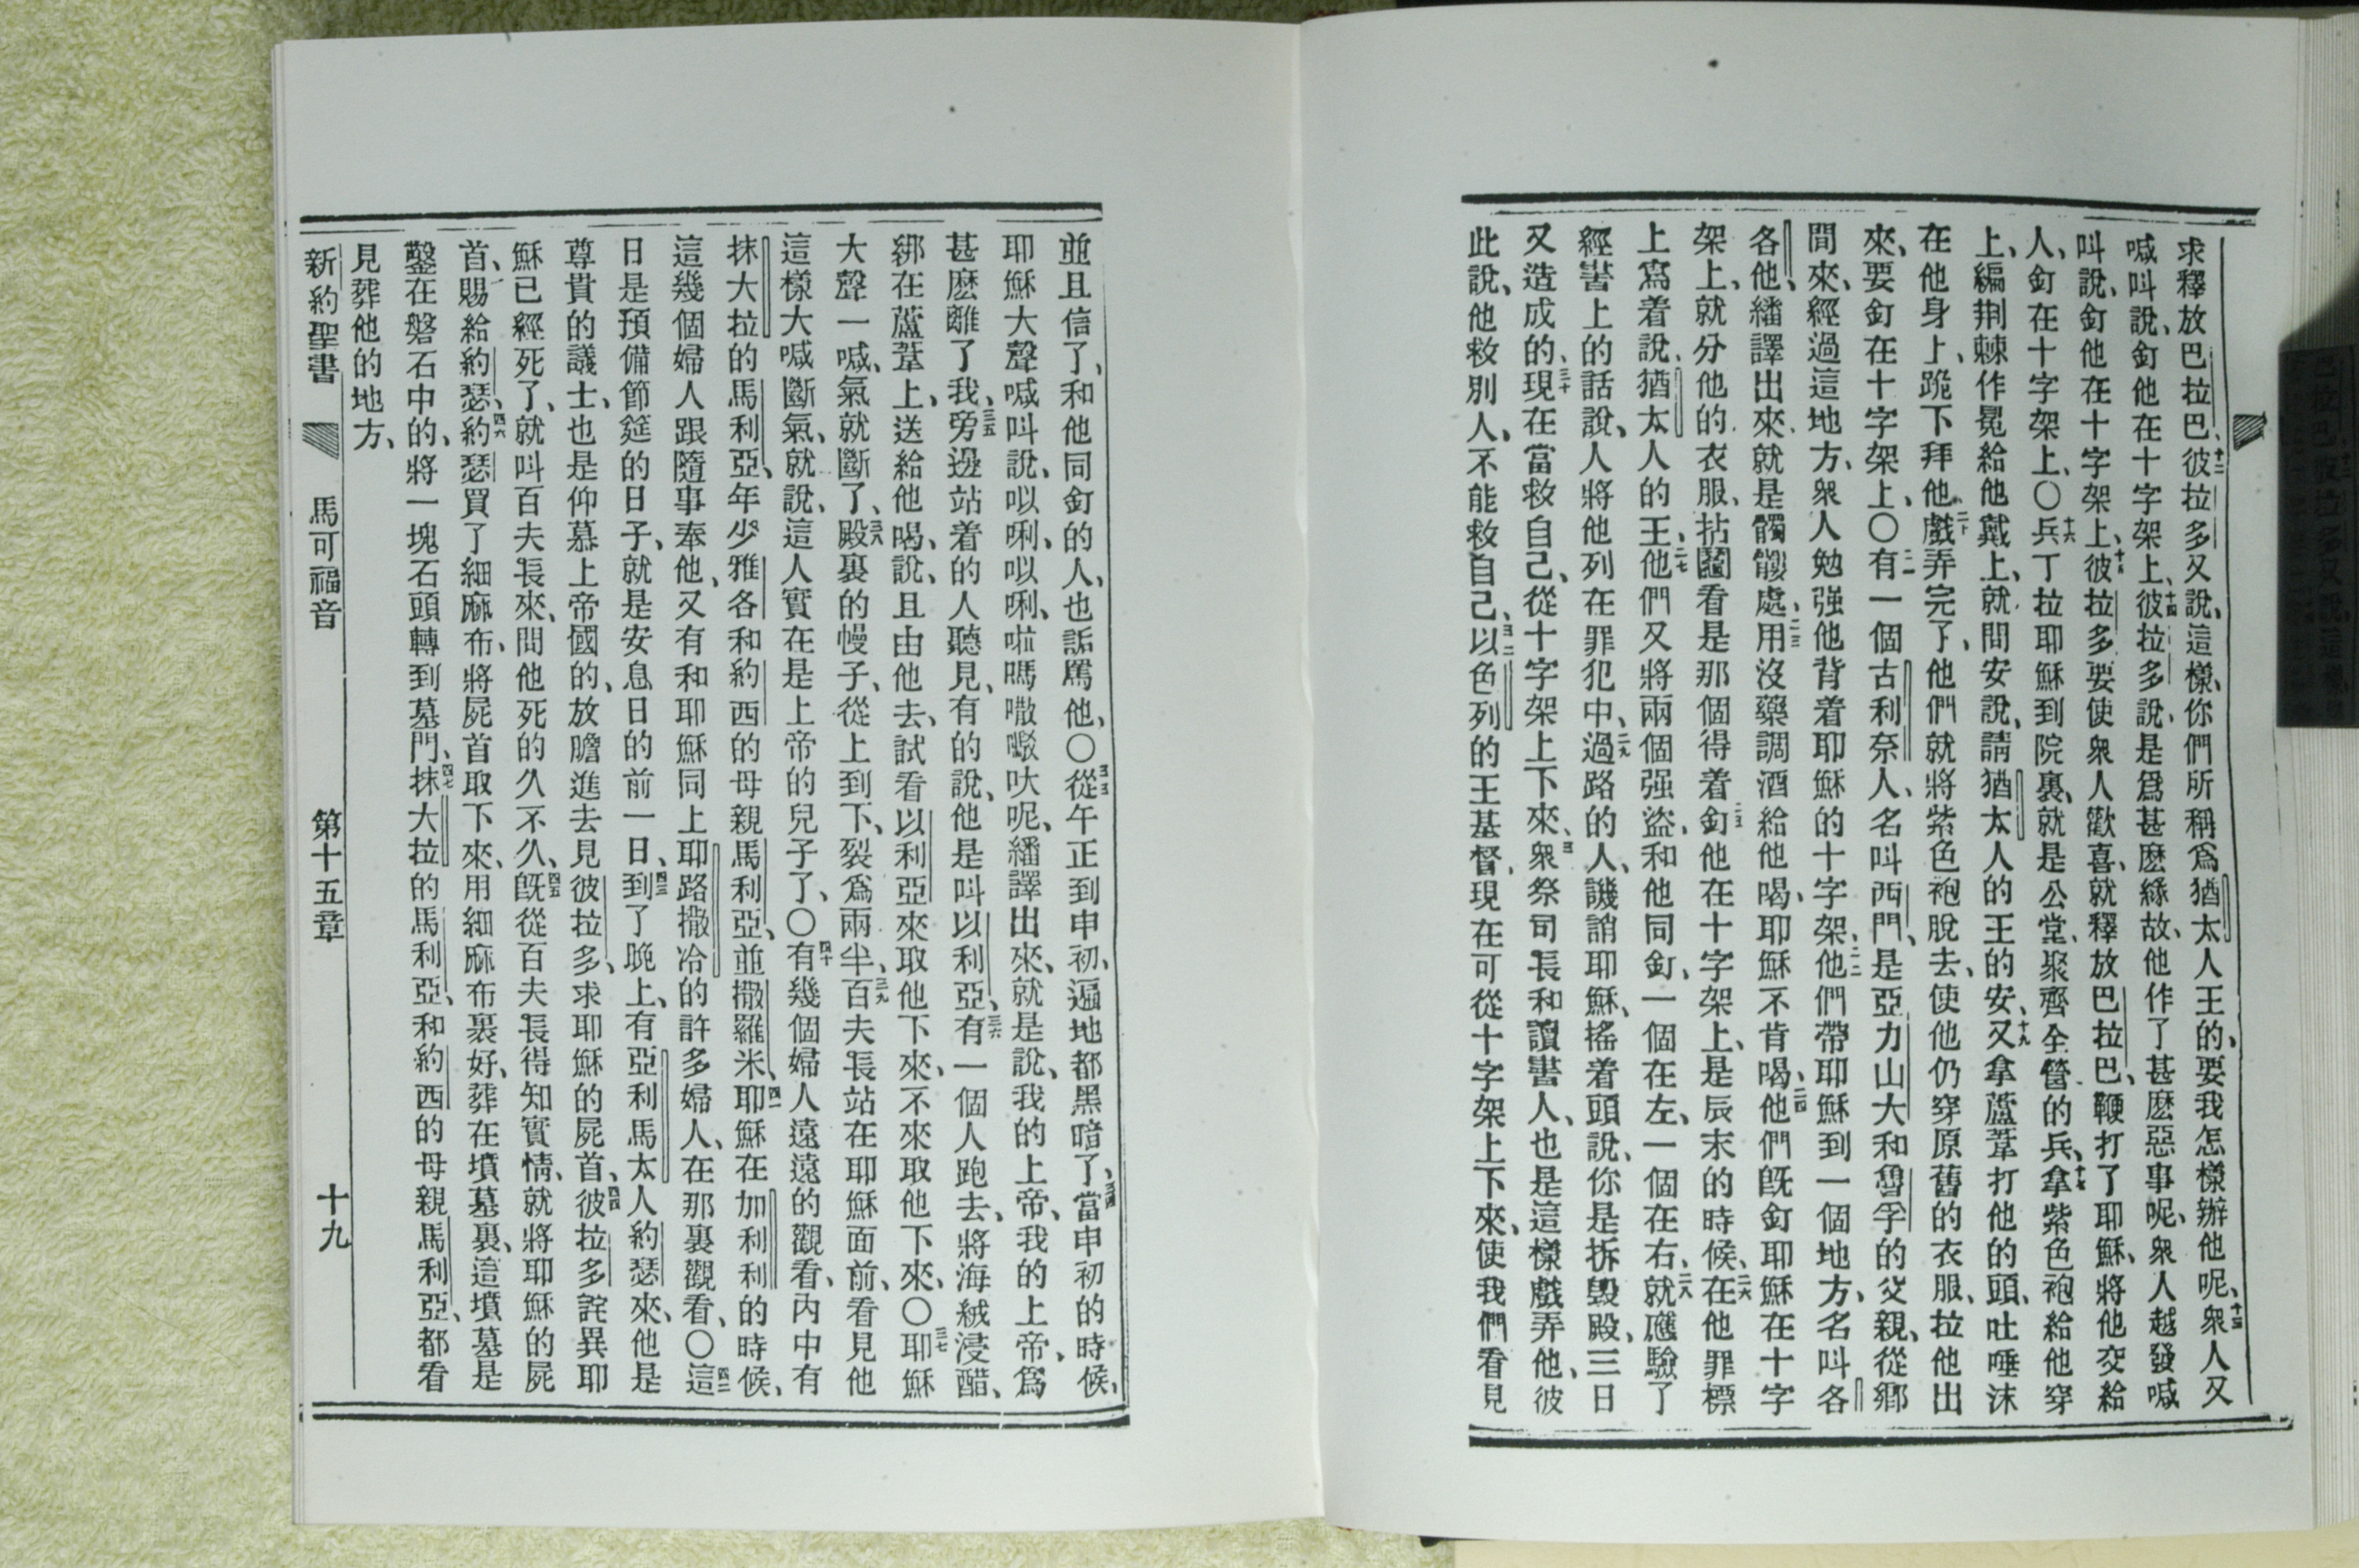 求釋放巴拉巴、十二彼拉多又說、這樣、你們所稱爲猶太人王的、要我怎樣辦他呢、十三衆人又
喊叫說、釘他在十字架上、十四彼拉多說、是爲甚麽緣故、他作了甚麽惡事呢、衆人越發喊
叫說、釘他在十字架上、十五彼拉多要使衆人歡喜、就釋放巴拉巴、鞭打了耶穌、將他交給
人、釘在十字架上、〇十六兵丁拉耶穌到院裏、就是公堂、聚齊全營的兵、十七拿紫色袍給他穿
上、編荆棘作冕給他戴上、就問安說、請猶太人的王的安、十九又拿蘆葦打他的頭、吐唾沫
在他身上、跪下拜他、二十戲弄完了、他們就將紫色袍脫去、使他仍穿原舊的衣服、拉他出
來、要釘在十字架上、〇二一有一個古利奈人、名叫西門、是亞力山大和魯孚的父親、從鄉
間來、經過這地方、衆人勉强他背着耶穌的十字架、二二他們帶耶穌到一個地方、名叫各
各他、繙譯出來就是髑髏處、二三用沒藥調酒給他喝、耶穌不肯喝、二四他們旣釘耶穌在十字
架上、就分他的衣服、拈鬮看是那個得着、二五釘他在十字架上、是辰末的時候、二六在他罪標
上寫着說、猶太人的王、二七他們又將兩個强盜、和他同釘、一個在左、一個在右、二八就應驗了
經書上的話說、人將他列在罪犯中、二九過路的人、譏誚耶穌、搖着頭說、你是拆毀殿、三日
又造成的、三十現在當救自己、從十字架上下來、三一衆祭司長和讀書人、也是這樣戲弄他、彼
此說、他救別人、不能救自己、三二以色列的王基督、現在可從十字架上下來、使我們看見
並且信了、和他同釘的人、也詬罵他、〇三三從午正到申初、遍地都黑暗了、三四當申初的時候、
耶穌大聲喊叫說、以唎、以唎、啦嗎㗮𠹌呔呢、繙譯出來、就是說、我的上帝、我的上帝、爲
甚麽離了我、三五旁邊站着的人聽見、有的說、他是叫以利亞、三六有一個人跑去、將海絨浸醋、
綁在蘆葦上、送給他喝、說、且由他去、試看以利亞來取他下來、不來取他下來、〇三七耶穌
大聲一喊、氣就斷了、三八殿裏的幔子、從上到下、裂爲兩半、三九百夫長站在耶穌面前、看見他
這樣大喊斷氣、就說、這人實在是上帝的兒子了、〇四十有幾個婦人遠遠的觀看、內中有
抹大拉的馬利亞、年少雅各和約西的母親馬利亞、並撒羅米、四一耶穌在加利利的時候、
這幾個婦人跟隨事奉他、又有和耶穌同上耶路撒冷的許多婦人、在那裏觀看、〇四二這
日是預備節筵的日子、就是安息日的前一日、四三到了晚上、有亞利馬太人約瑟來、他是
尊貴的議士、也是仰慕上帝國的、放膽進去見彼拉多、求耶穌的屍首、四四彼拉多詫異耶
穌已經死了、就叫百夫長來、問他死的久不久、四五旣從百夫長得知實情、就將耶穌的屍
首、賜給約瑟、四六約瑟買了細麻布、將屍首取下來、用細麻布裹好、葬在墳墓裏、這墳墓是
鑿在磐石中的、將一塊石頭轉到墓門、四七抹大拉的馬利亞、和約西的母親馬利亞、都看
見葬他的地方、
新約聖書 馬可福音 第十五章 十九